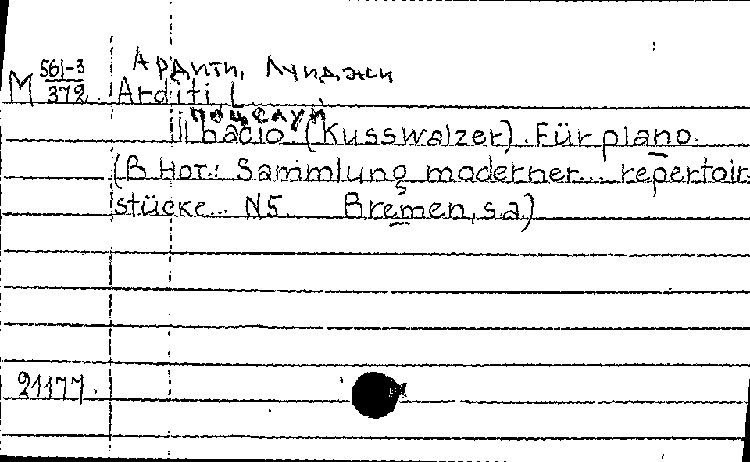 Ардити, Луиджи
М 561-3/372 Arditi L
поцелуй
Il bacio (Kusswalzer). Für piano.
(В нот.: Sammlung moderner... repertoir-
stücke... N5. Bremen, s.a)
21177.